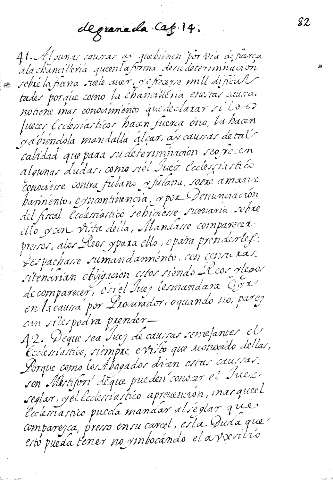 de granada Cap. 14. 82
41. Algunas causas ay que bienen por via de fuerza
a la chancilleria que en la forma de su determinacion
sobre la parte suele auer, y ofrecen mill dificul
tades porque como la chancilleria en estas causas
no tiene mas conocimiento que declarar si los
Jueces Ecclesiasticos hacen fuerza o no, la hacen
y abiendola mandalla alçar, ay causas de tal
calidad que para su determinacion se ofrecen
algunas dudas, como si el Juez Ecclesiastico
conociese contra fulano, y fulana, sobre amance
bamiento, e yncontinencia, y por Denunciacion
del fiscal Ecclesiastico se hiciese, sumaria sobre
ello y en Vista della, Mandase comparecer
presos, a los Reos y para ello, o para prenderlos
Despachase su mandamiento, con censuras,
si tendrian obligacion estos siendo Reos legos
de comparecer, o si el Juez les mandara oyr
en la causa por Procurador, o quando no, parez
can si les podra prender —
42. De que sea Juez de causas semejantes el
Ecclesiastico, siempre e visto que no ay duda dello,
Porque como los Abogados dicen estas causas
son Mistifori de que pueden conocer el Juez
seglar, y el ecclesiastico a prevencion, mas que el
Ecclesiastico pueda mandar al seglar que
comparezca, preso en su carcel, esta Duda que
esto pueda hacer no ymbocando el auxilio